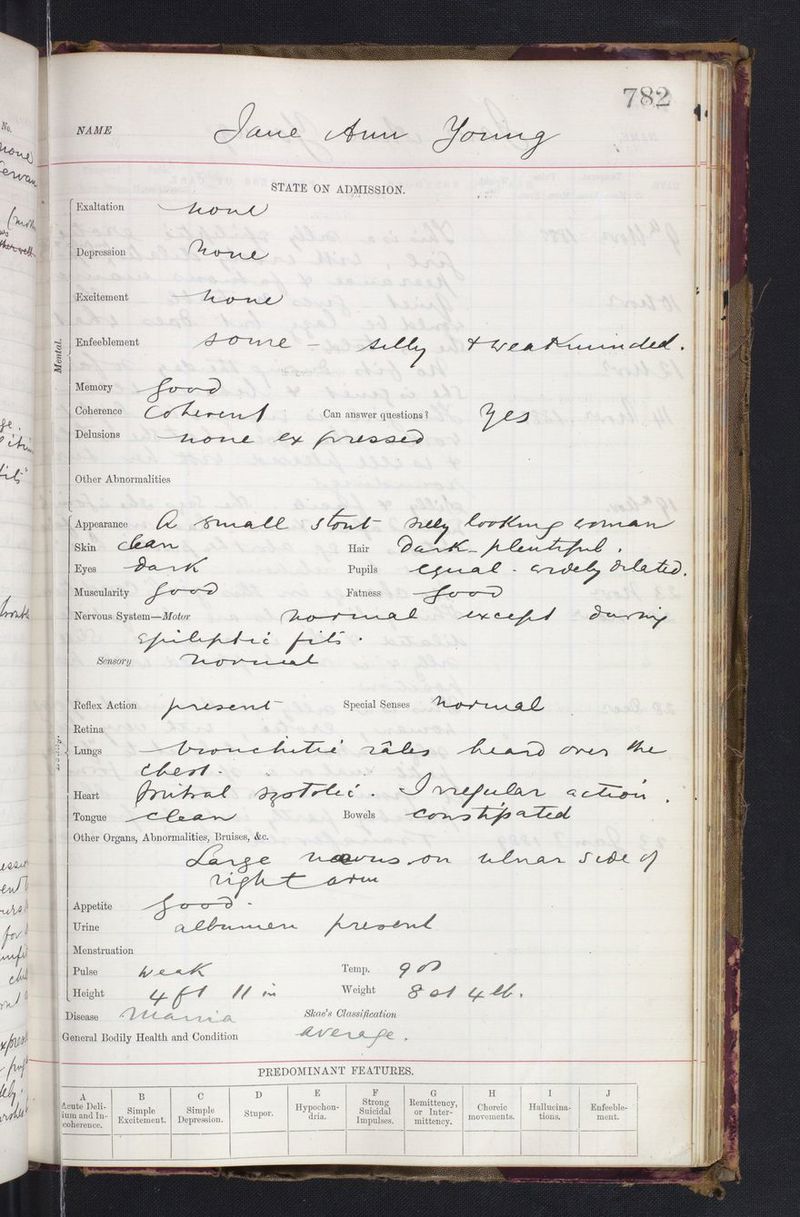 782
NAME Jane Ann Young
STATE ON ADMISSION.
Mental.
Exaltation none
Depression none
Excitement none
Enfeeblement some - silly & weakminded.
Memory good
Coherence Coherent Can answer questions? Yes
Delusions none expressed
Other Abnormalities
Appearance A small stout silly looking woman
Skin clean Hair Dark - plentiful.
Eyes dark Pupils equal - widely dilated.
Muscularity good Fatness good
Nervous System—Motor normal except during
epileptic fits.
Sensory normal
Reflex Action present Special Senses normal
Retina
Lungs bronchitic râles heard over the
chest.
Heart mitral systolic. Irregular action.
Tongue clean Bowels constipated
Other Organs, Abnormalities, Bruises, &c.
Large naevus on ulnar side of
right arm
Appetite good.
Urine albumen present
Menstruation
Pulse weak Temp.
Height 4 ft 11 in Weight 8 st 4 lb.
Disease Mania Skae's Classification
General Bodily Health and Condition average.
PREDOMINANT FEATURES.
A B C D E F G H I J
Acute Delirium and Incoherence. Simple Excitement. Simple Depression. Stupor. Hypochondria. Strong Suicidal Impulses. Remittency, or Intermittency. Choreic movements. Hallucinations. Enfeeblement.